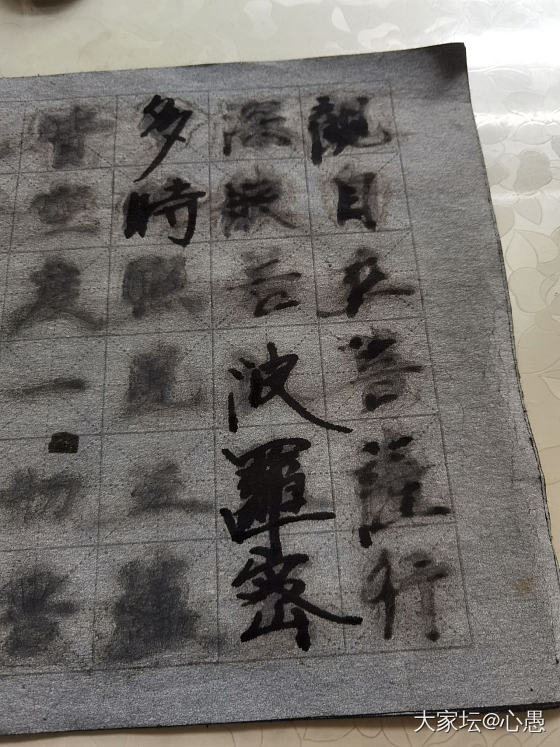 觀自在菩薩行
深般若波羅密
多時照見五蘊
皆空度一切苦
大家坛@心愚